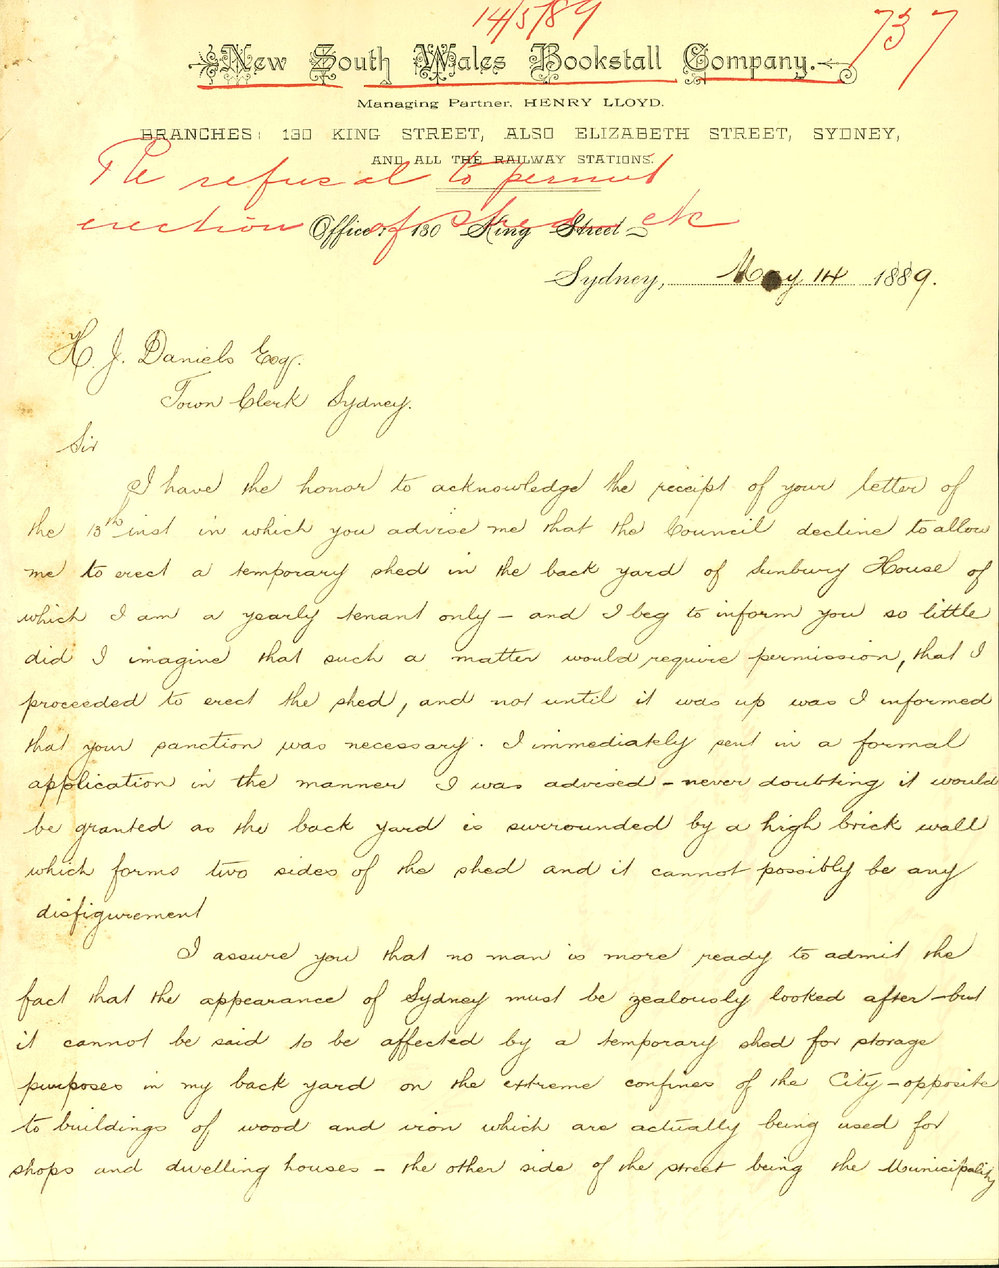 14/5/89
737
New South Wales Bookstall Company.
Managing Partner, HENRY LLOYD.
BRANCHES: 130 KING STREET, ALSO ELIZABETH STREET, SYDNEY,
AND ALL THE RAILWAY STATIONS.
The refusal to permit
erection of shed etc
Office: 130 King Street
Sydney, May 14 1889.
H. J. Daniels Esq.
Town Clerk Sydney.
Sir
I have the honor to acknowledge the receipt of your letter of
the 13th inst in which you advise me that the Council decline to allow
me to erect a temporary shed in the back yard of Sunbury House of
which I am a yearly tenant only – and I beg to inform you so little
did I imagine that such a matter would require permission, that I
proceeded to erect the shed, and not until it was up was I informed
that your sanction was necessary. I immediately sent in a formal
application in the manner I was advised – never doubting it would
be granted as the back yard is surrounded by a high brick wall
which forms two sides of the shed and it cannot possibly be any
disfigurement
I assure you that no man is more ready to admit the
fact that the appearance of Sydney must be zealously looked after – but
it cannot be said to be affected by a temporary shed for storage
purposes in my back yard on the extreme confines of the City – opposite
to buildings of wood and iron which are actually being used for
shops and dwelling houses – the other side of the street being the Municipality